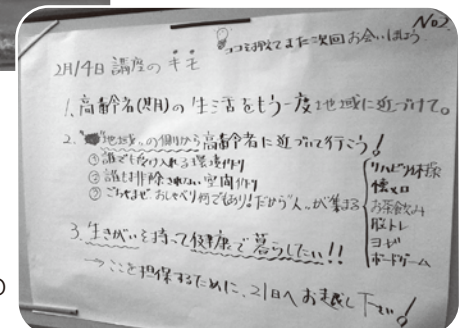 No2.
ココを押えてまた次回お会いしましょう
2月14日 講座のキモ
1. 高齢者(期)の生活をもう一度地域に近づけて。
2. "地域"の側から高齢者に近づいて行こう!
① 誰でも受け入れる環境作り
② 誰も排除されない空間作り
③ ごちゃまぜ おしゃべり何でもあり!だから"人"が集まる
リハビリ体操
お茶飲み
筋トレ
ヨガ
ボードゲーム
3. 生きがいを持って健康で暮らしたい!!
→ ここを担保するために、21日へお越し下さい!
の